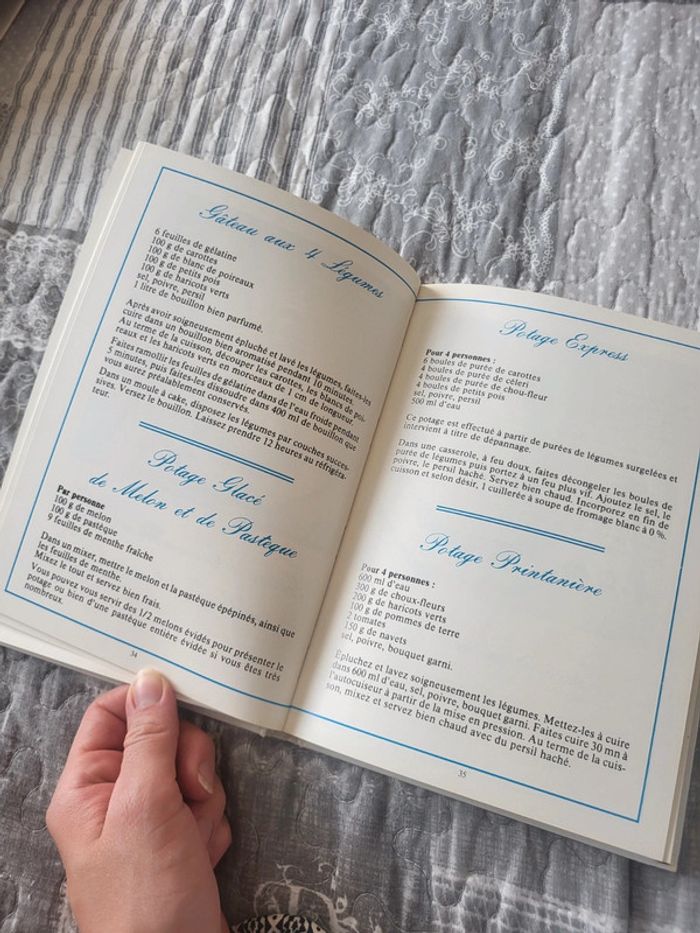 Gâteau aux 4 Légumes
6 feuilles de gélatine
100 g de carottes
100 g de blanc de poireaux
100 g de petits pois
100 g de haricots verts
sel, poivre, persil
1 litre de bouillon bien parfumé.
Après avoir soigneusement épluché et lavé les légumes, faites-les
cuire dans un bouillon bien aromatisé pendant 10 minutes.
Au terme de la cuisson, découper les carottes, les blancs de poi-
reaux et les haricots verts en morceaux de 1 cm de longueur.
Faites ramollir les feuilles de gélatine dans de l'eau froide pendant
5 minutes, puis faites-les dissoudre dans 400 ml de bouillon que
vous aurez préalablement conservés.
Dans un moule à cake, disposez les légumes par couches succes-
sives. Versez le bouillon. Laissez prendre 12 heures au réfrigéra-
teur.
Potage Glacé
de Melon et de Pastèque
Par personne
100 g de melon
100 g de pastèque
9 feuilles de menthe fraîche
Dans un mixer, mettre le melon et la pastèque épépinés, ainsi que
les feuilles de menthe.
Mixez le tout et servez bien frais.
Vous pouvez vous servir des 1/2 melons évidés pour présenter le
potage ou bien d'une pastèque entière évidée si vous êtes très
nombreux.
34
Potage Express
Pour 4 personnes :
6 boules de purée de carottes
4 boules de purée de céleri
4 boules de purée de chou-fleur
4 boules de petits pois
sel, poivre, persil
500 ml d'eau
Ce potage est effectué à partir de purées de légumes surgelées et
intervient à titre de dépannage.
Dans une casserole, à feu doux, faites décongeler les boules de
purée de légumes puis portez à un feu plus vif. Ajoutez le sel, le
poivre, le persil haché. Servez bien chaud. Incorporez en fin de
cuisson et selon désir, 1 cuillerée à soupe de fromage blanc à 0 %.
Potage Printanière
Pour 4 personnes :
600 ml d'eau
300 g de choux-fleurs
200 g de haricots verts
100 g de pommes de terre
2 tomates
150 g de navets
sel, poivre, bouquet garni.
Épluchez et lavez soigneusement les légumes. Mettez-les à cuire
dans 600 ml d'eau, sel, poivre, bouquet garni. Faites cuire 30 mn à
l'autocuiseur à partir de la mise en pression. Au terme de la cuis-
son, mixez et servez bien chaud avec du persil haché.
35